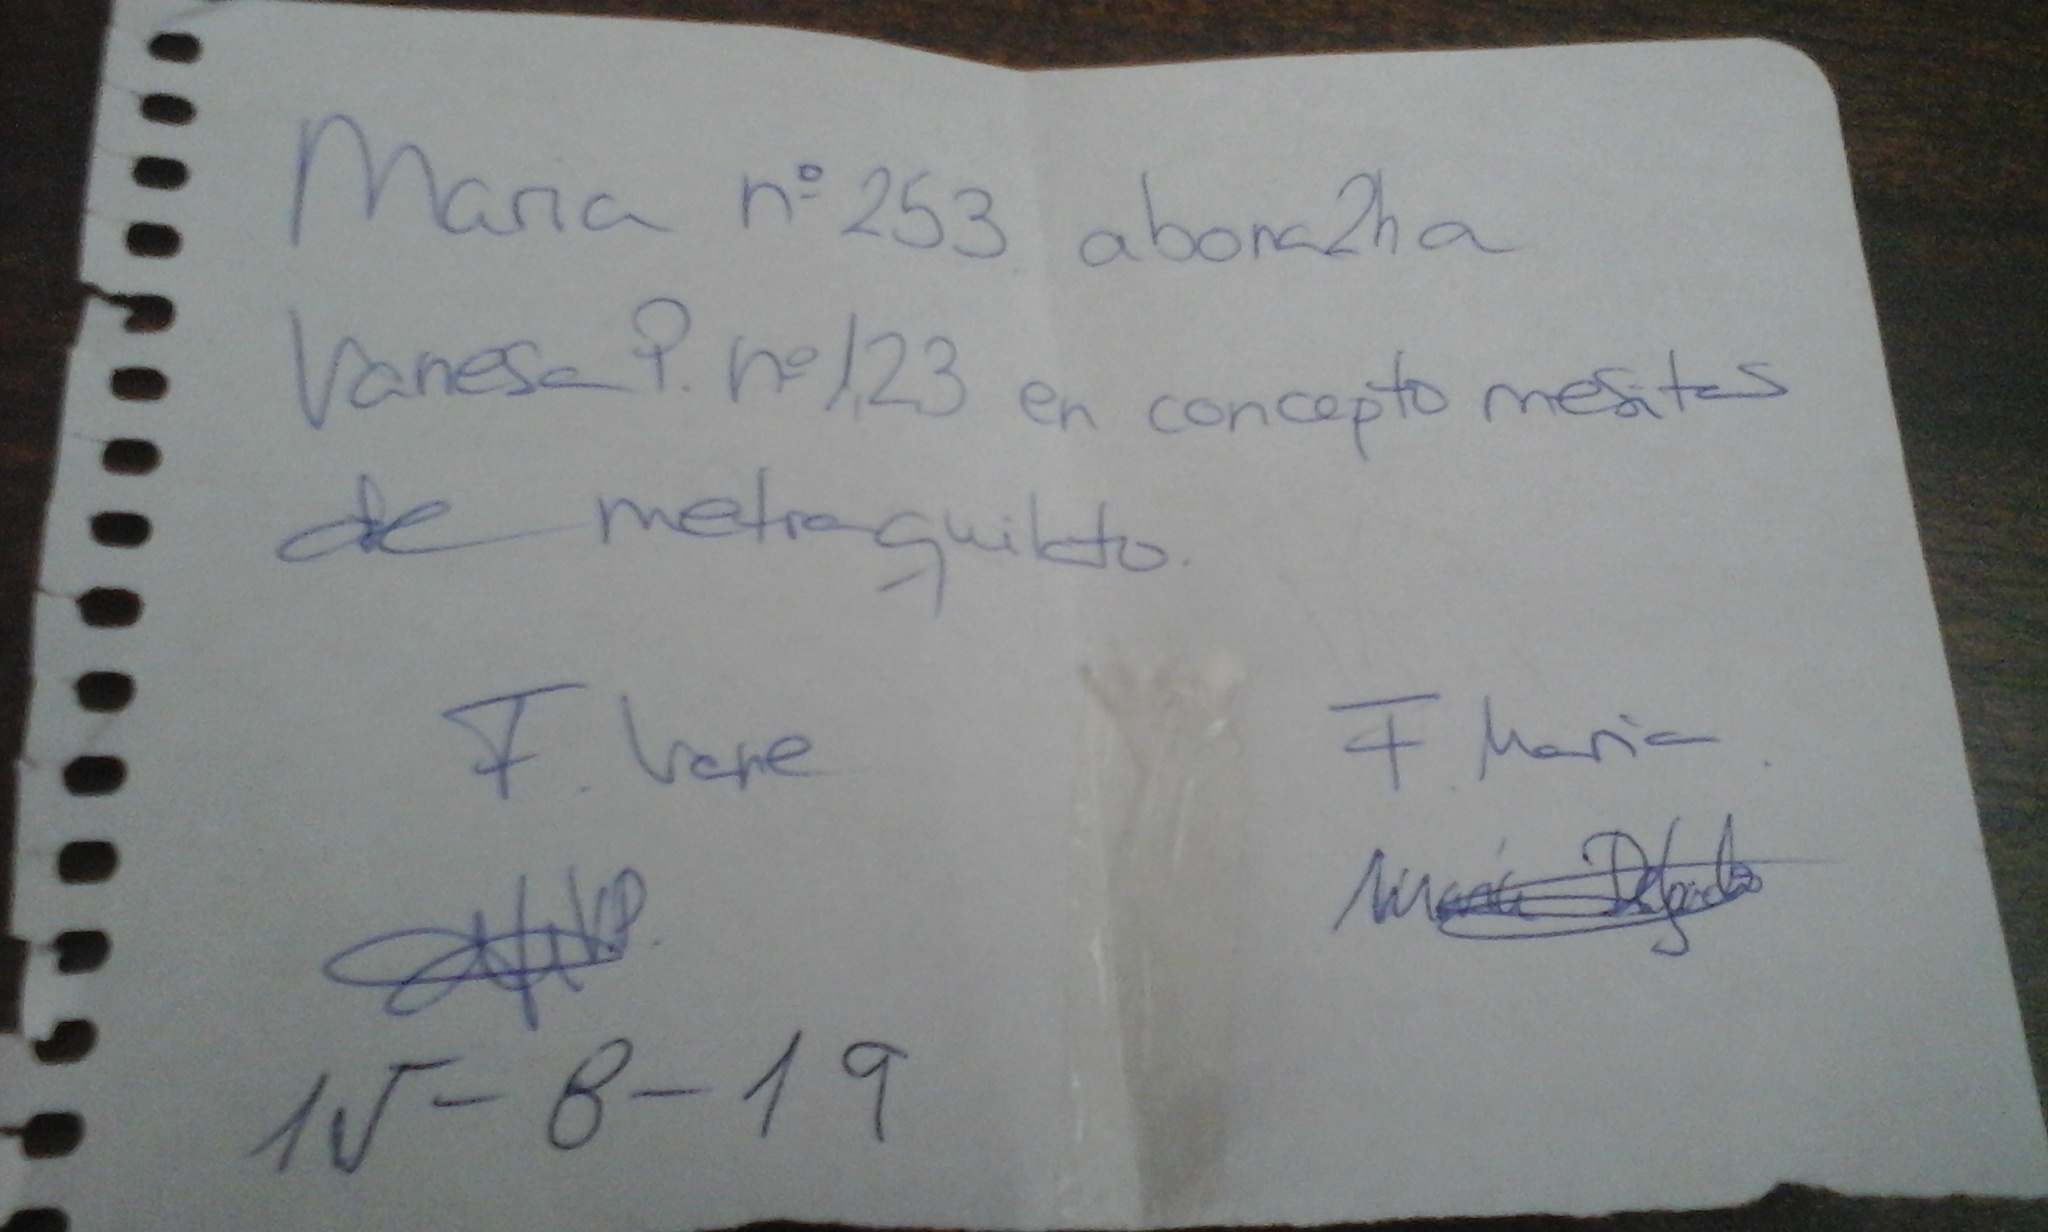 Maria nº 253 abona 2h a
Vanesa P. nº 123 en concepto mesitas
de metraquilato.
F. Vane F. Maria.
VP. María Delgado
15-8-19